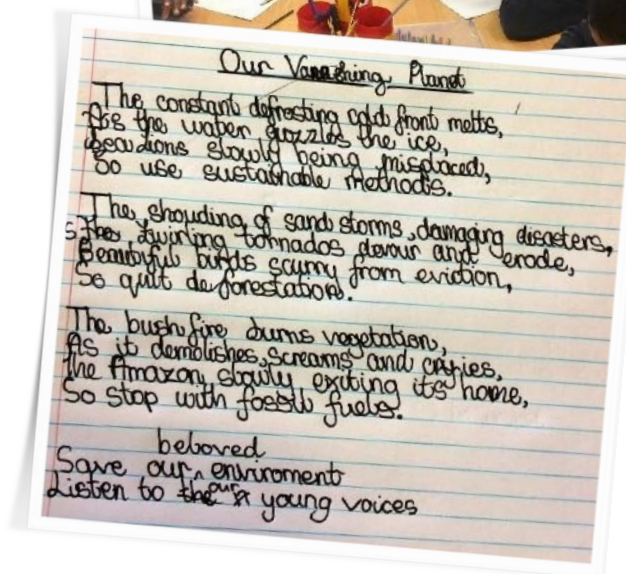 Our Vanishing Planet
The constant defrosting cold front melts,
As the water guzzles the ice,
slowly being misplaced,
So use sustainable methods.
The shouding of sand storms, damaging disasters,
As the twirling tornados devour and erode,
Beautiful birds scurry from eviction,
So quit deforestation.
The bush fire burns vegetation,
As it demolishes, screams and crys,
the Amazon slowly exiting its home,
So stop with fossil fuels.
beloved
Save our ^ enviroment
Listen to our young voices